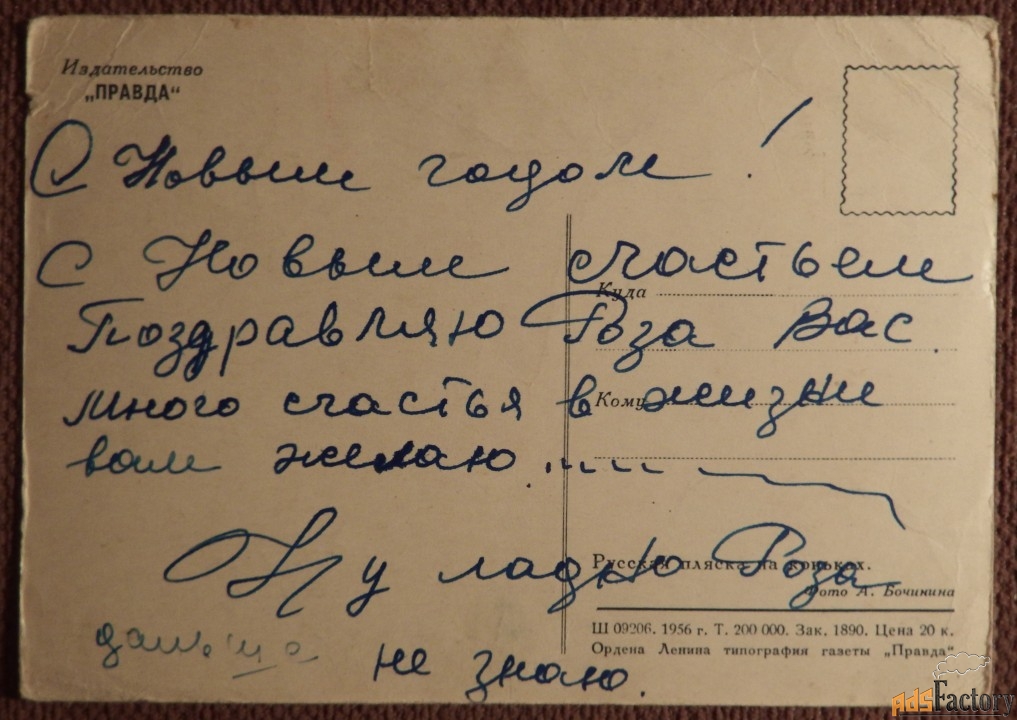 Издательство
„ПРАВДА“
С Новым годом !
С Новым счастьем
Куда
Поздравляю Роза Вас.
Много счастья в жизни
Кому
вам желаю.....
Ну ладно Роза
Русская пляска на коньках.
Фото А. Бочинина
Ш 09206. 1956 г. Т. 200 000. Зак. 1890. Цена 20 к.
Ордена Ленина типография газеты „Правда“.
не знаю.
AdsFactory